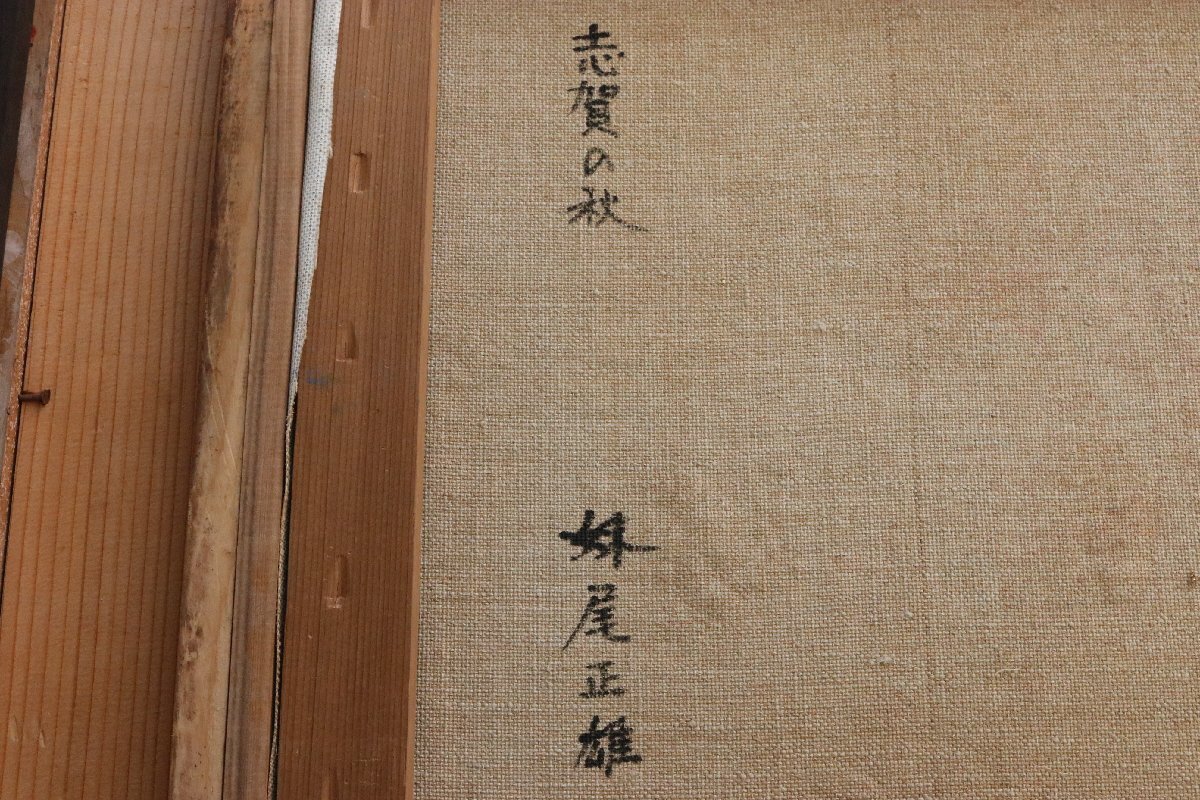 志賀の秋
妹尾正雄